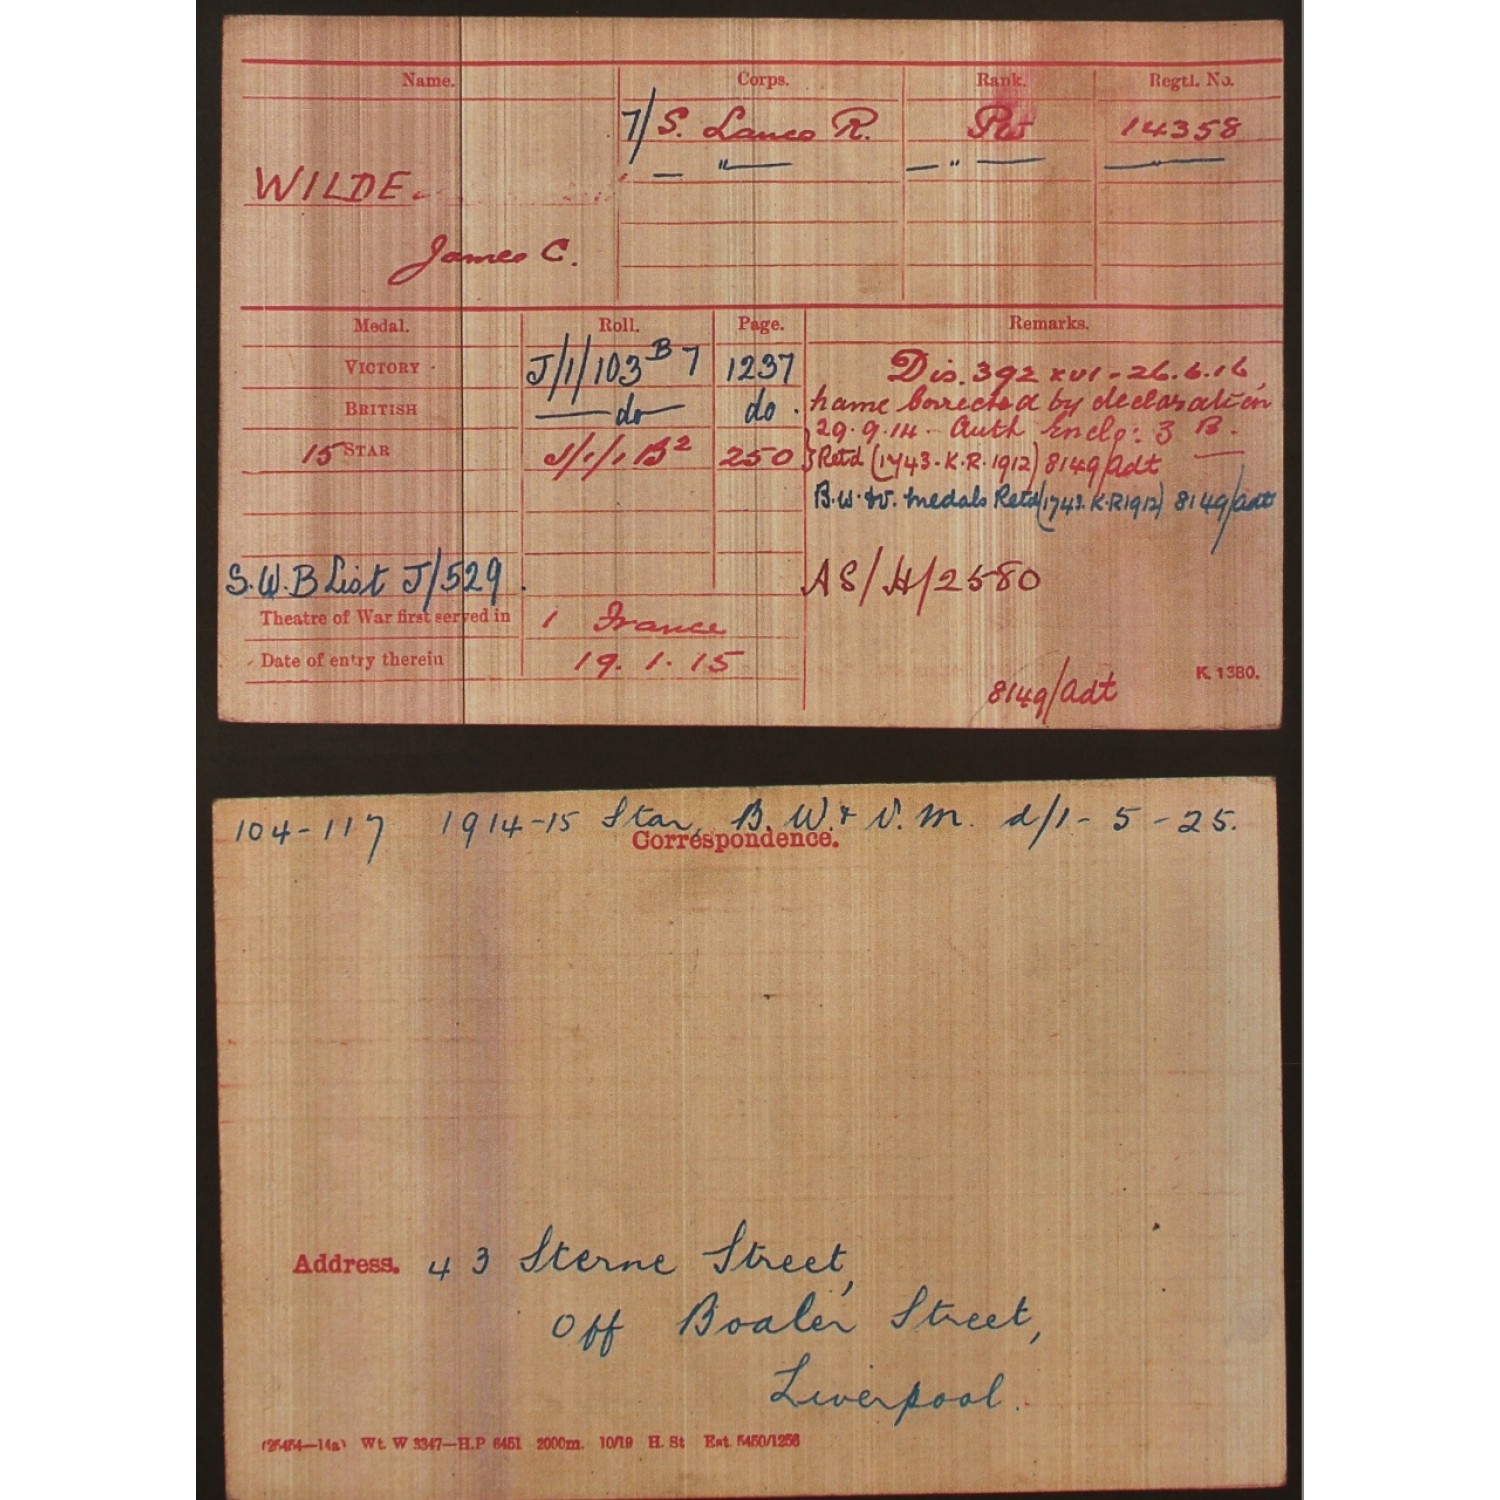 Name. Corps. Rank. Regtl. No.
7/S. Lancs R. Pte 14358
— " — — " — — " —
WILDE.
James C.
Medal. Roll. Page. Remarks.
VICTORY J/1/103 B 7 1237 Dis. 392 xvi - 26.6.16
BRITISH — do — do. name corrected by declaration
29.9.14 - Auth Encl: 3 B.
15 STAR J/1/1 B2 250 Retd (1743. K.R. 1912) 8149/Adt
B.W. & V. medals Retd (1743. K.R 1912) 8149/Adt
S.W.B List J/529. AS/H/2580
Theatre of War first served in 1 France
Date of entry therein 19.1.15
K. 1380.
8149/Adt
104-117 1914-15 Star, B.W. & V.M. d/1-5-25.
Correspondence.
Address. 43 Sterne Street,
Off Boaler Street,
Liverpool.
(25454—14a) Wt. W 3347—H.P 6451 2000m. 10/19 H. St Est. 5450/1256